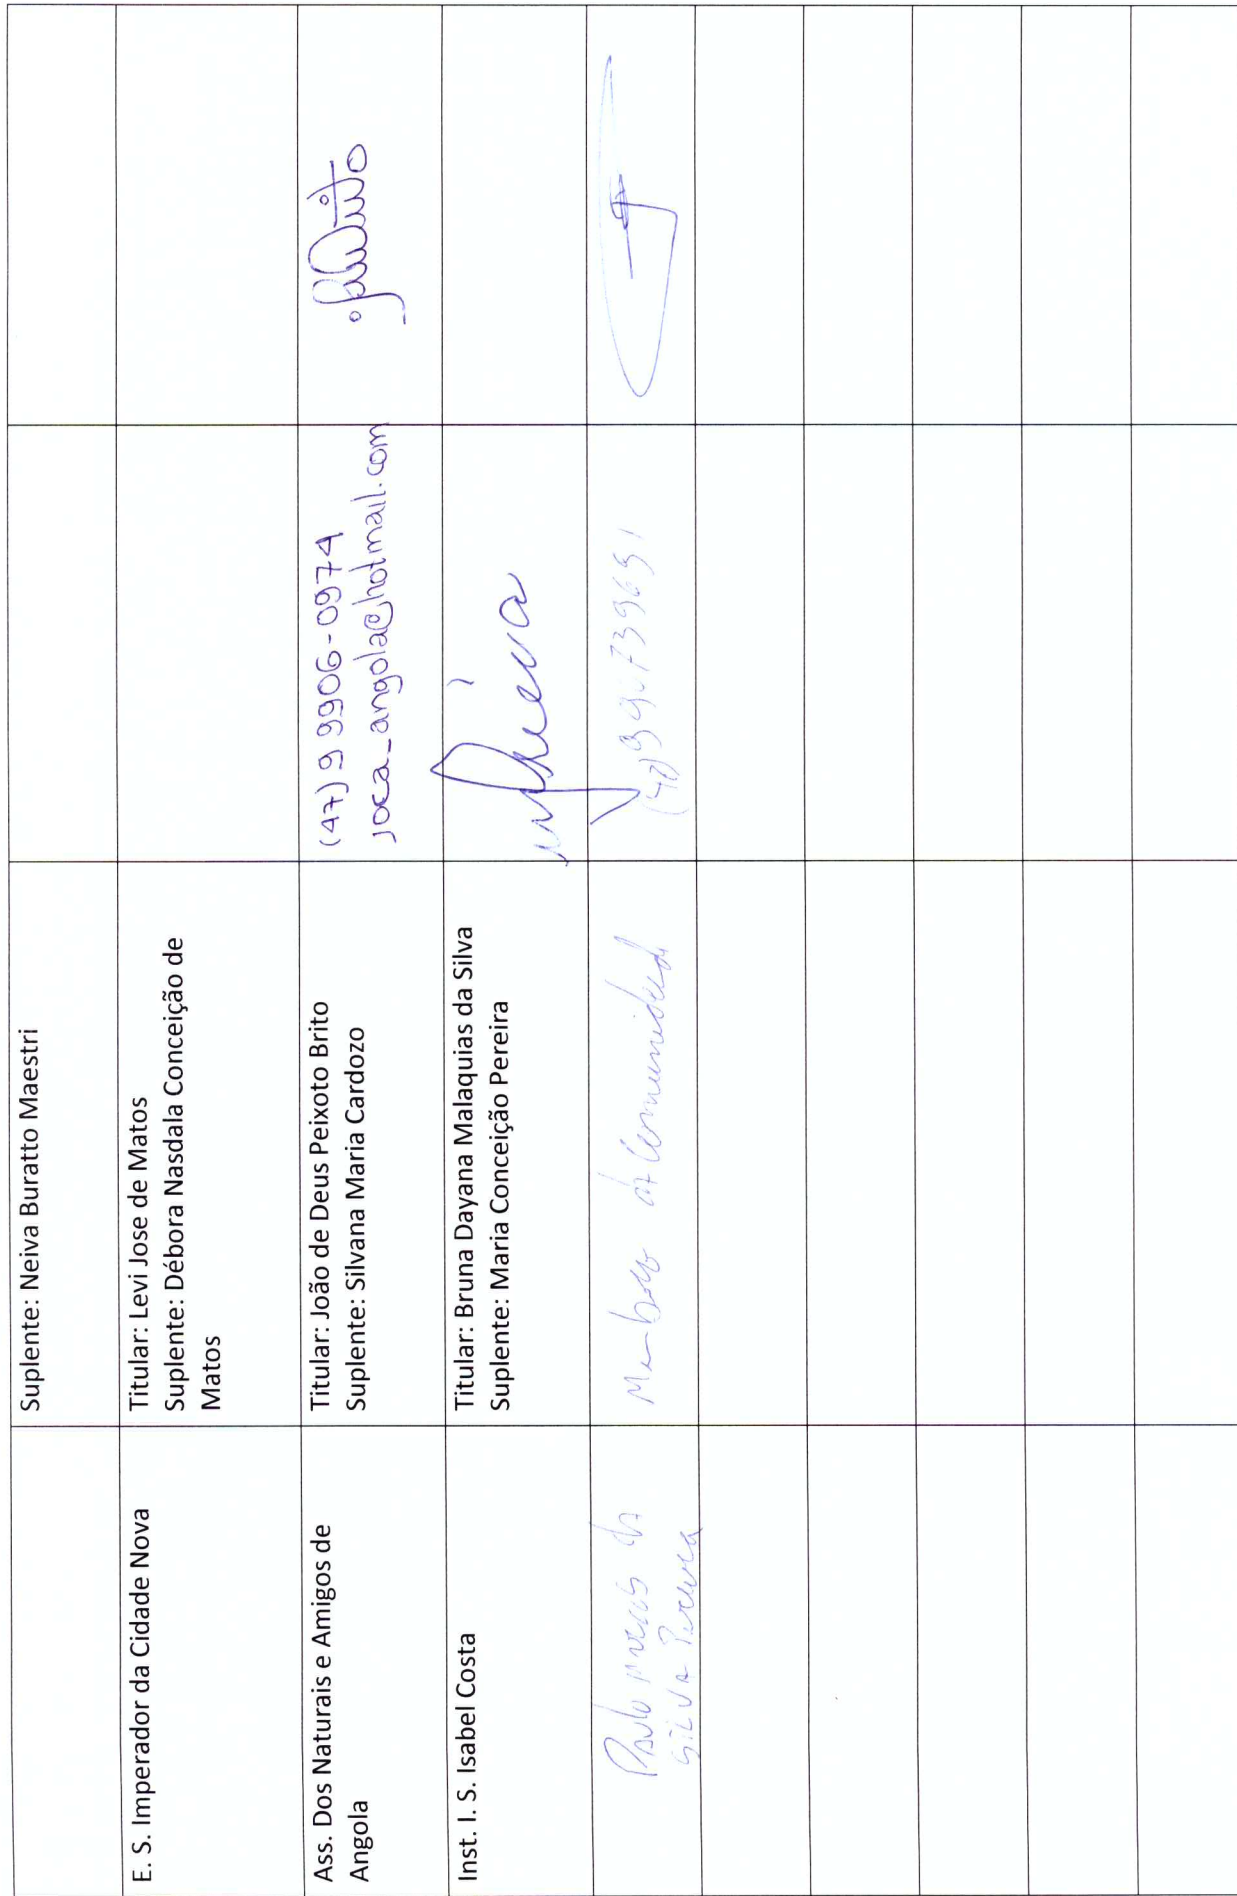 Suplente: Neiva Buratto Maestri
E. S. Imperador da Cidade Nova
Titular: Levi Jose de Matos
Suplente: Débora Nasdala Conceição de
Matos
Ass. Dos Naturais e Amigos de
Angola
Titular: João de Deus Peixoto Brito
Suplente: Silvana Maria Cardozo
(47) 9 9906-0974
joca_angola@hotmail.com
Inst. I. S. Isabel Costa
Titular: Bruna Dayana Malaquias da Silva
Suplente: Maria Conceição Pereira
Paulo da
Silva Pereira
Membro da Comunidade